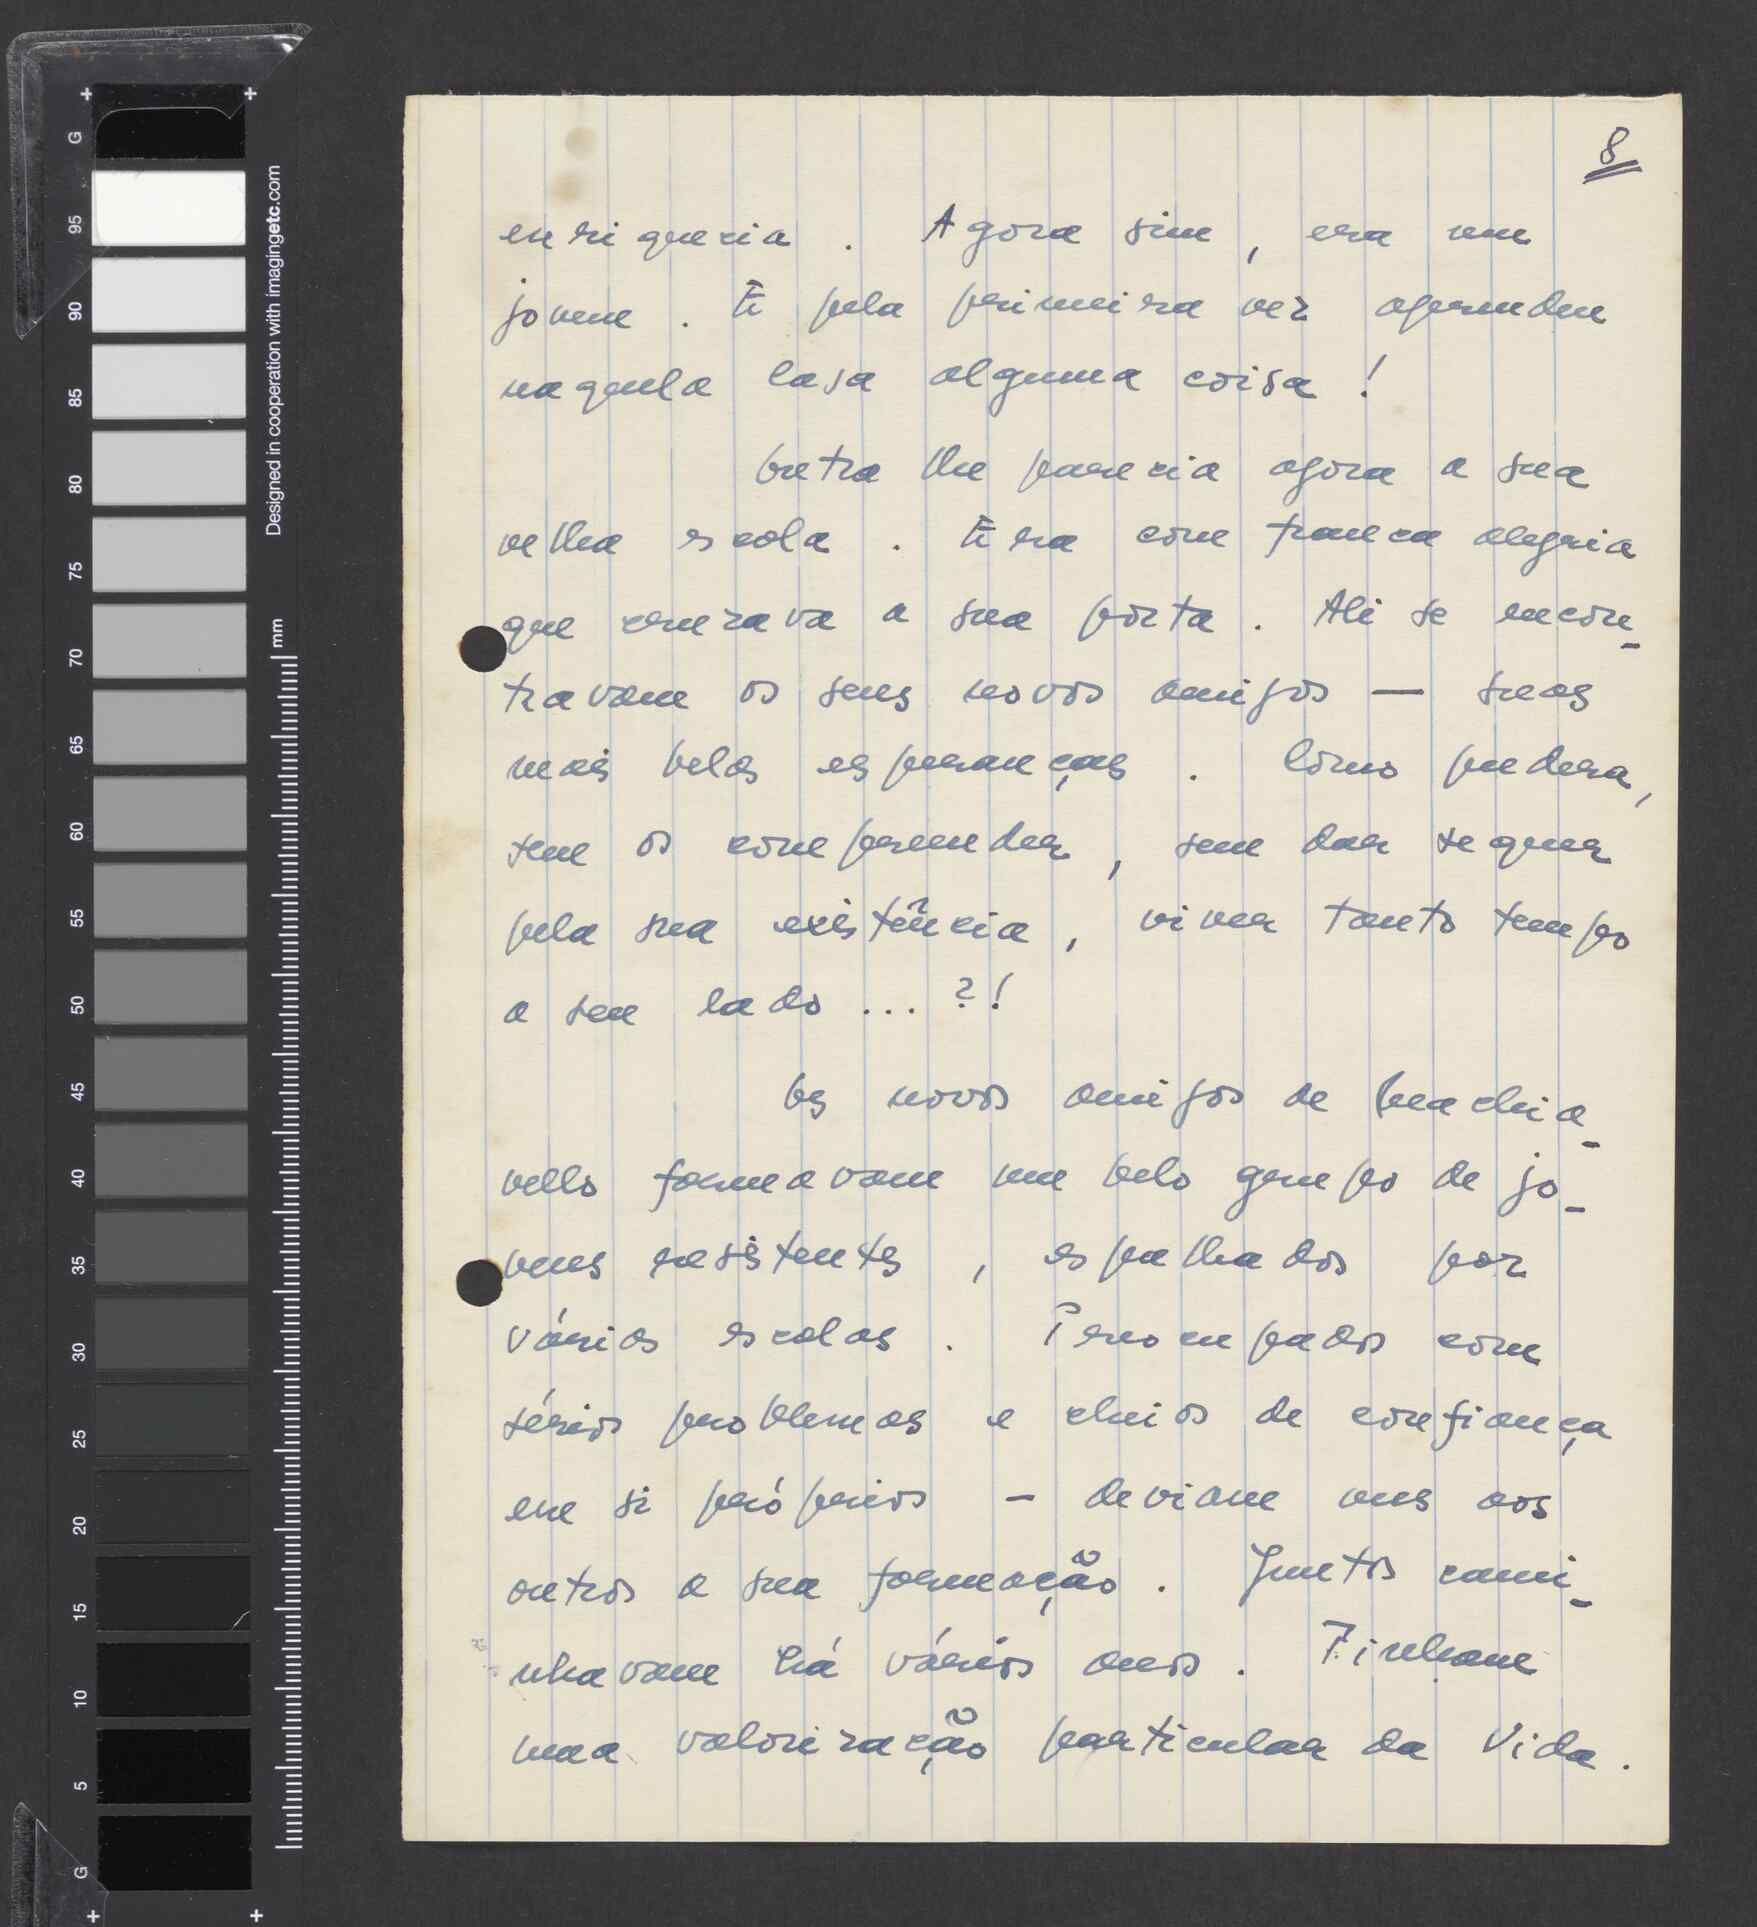 8
enriquecia. Agora sim, era um
jovem. E pela primeira vez aprendeu
naquela casa alguma coisa!
Outra lhe parecia agora a sua
velha escola. Era com franca alegria
que cruzava a sua porta. Ali se encon-
travam os seus novos amigos — suas
mais belas esperanças. Como pudera,
sem os compreender, sem dar sequer
pela sua existência, viver tanto tempo
a seu lado...?!
Os novos amigos de Machia-
vello formavam um belo grupo de jo-
vens resistentes, espalhados por
várias escolas. Preocupados com
sérios problemas e cheios de confiança
em si próprios – deviam uns aos
outros a sua formação. Juntos cami-
nhavam há vários anos. Tinham
uma valorização particular da Vida.
Designed in cooperation with imagingetc.com
mm
G
95
90
85
80
75
70
65
60
55
50
45
40
35
30
25
20
15
10
5
G